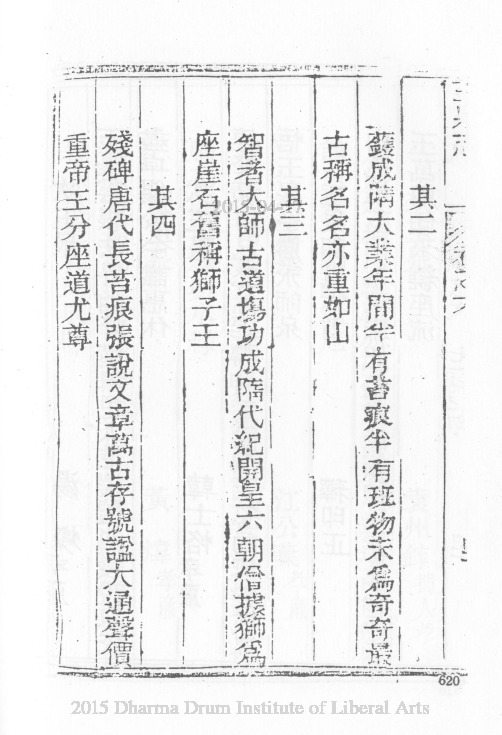 其二
鑊成隋大業年間半有苔痕半有班物未爲奇奇最
古稱名名亦重如山
其三
智者大師古道塲功成隋代紀開皇六朝僧據獅爲
座崖石舊稱獅子王
其四
殘碑唐代長苔痕張說文章萬古存號諡大通聲價
重帝王分座道尤尊
620
2015 Dharma Drum Institute of Liberal Arts